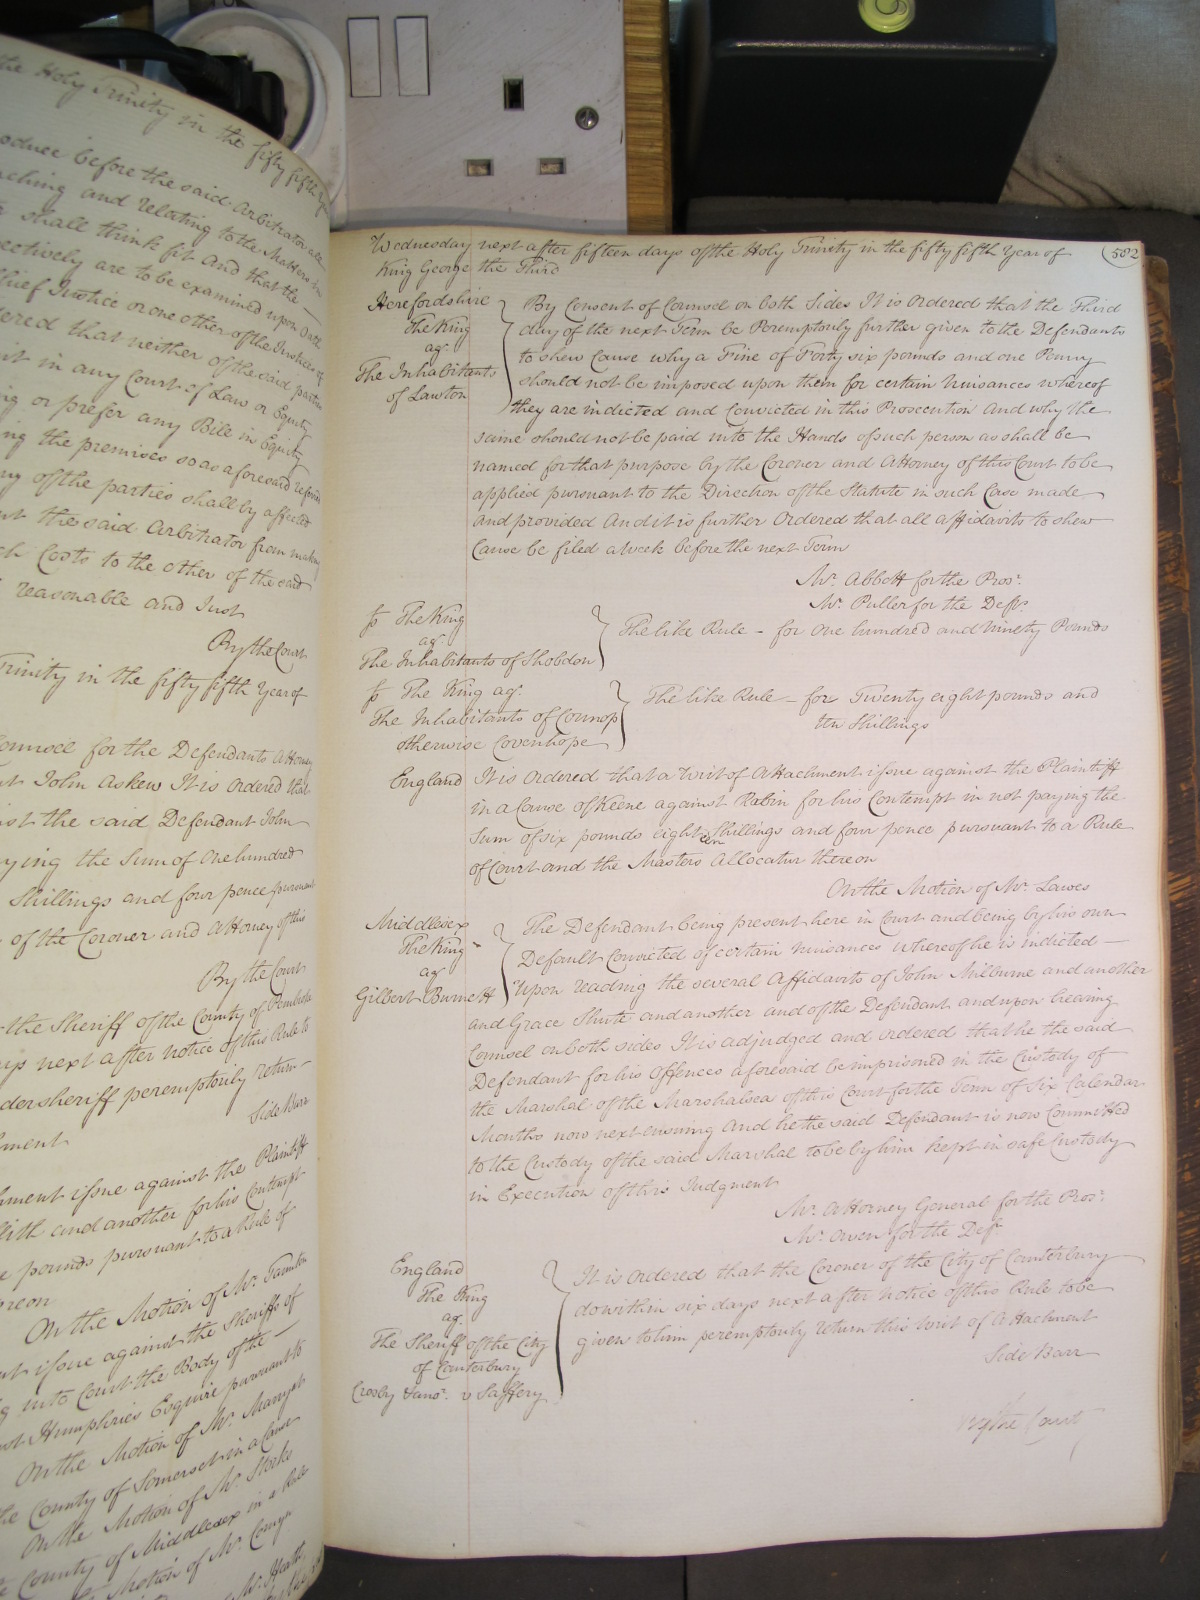 the Holy Trinity in the fifty fifth
produce before the said Arbitrator all
and relating to the Matters in
shall think fit And that the
are to be examined upon Oath
Chief Justice or one other of the Justices of
that neither of the said parties
in any Court of Law or Equity
or prefer any Bill in Equity
the premises so as aforesaid referred
of the parties shall by affected
the said Arbitrator from making
Costs to the other of the said
reasonable and Just
By the Court
Trinity in the fifty fifth Year of
Counsel for the Defendants Attorney
John Askew It is Ordered that
the said Defendant John
the Sum of One hundred
Shillings and four pence pursuant
of the Coroner and Attorney of this
By the Court
the Sheriff of the County of Pembroke
next after notice of this Rule to
undersheriff peremptorily return
Side Barr
issue against the Plaintiff
and another for his Contempt
pounds pursuant to a Rule of
On the Motion of Mr. Taunton
issue against the Sheriff of
into Court the Body of the
Humphries Esquire pursuant to
On the Motion of Mr. Manyatt
the County of Somerset in a Cause
On the Motion of Mr. Storks
County of Middlesex in a
Motion of Mr. Comyn
Mr. Heath
Wednesday next after fifteen days of the Holy Trinity in the fifty fifth Year of 582
King George the Third
Herefordshire By Consent of Counsel on both Sides It is Ordered that the Third
The King day of the next Term be Peremptorily further given to the Defendants
agt. to shew Cause why a Fine of Forty six pounds and one Penny
The Inhabitants should not be imposed upon them for certain Nuisances whereof
of Lawton they are indicted and Convicted in this Prosecution And why the
same should not be paid into the Hands of such person as shall be
named for that purpose by the Coroner and Attorney of this Court to be
applied pursuant to the Direction of the Statute in such Case made
and provided And it is further Ordered that all affidavits to shew
Cause be filed a week before the next Term
Mr. Abbott for the Prosr.
Mr. Puller for the Defts.
The King
agt. The like Rule - for One hundred and Ninety Pounds
The Inhabitants of Shobdon
The King agt. The like Rule - for Twenty eight pounds and
The Inhabitants of Counop ten Shillings
otherwise Covenhope
England It is Ordered that a Writ of Attachment issue against the Plaintiff
in a Cause of Keene against Rabin for his Contempt in not paying the
Sum of six pounds eight Shillings and four pence pursuant to a Rule
of Court and the Masters Allocatur thereon
On the Motion of Mr. Lawes
Middlesex The Defendant being present here in Court and being by his own
The King Default Convicted of certain Nuisances whereof he is indicted -
agt. Upon reading the several Affidavits of John Milburne and another
Gilbert Burnett
and Grace Shute and another and of the Defendant and upon hearing
Counsel on both sides It is adjudged and Ordered that he the said
Defendant for his Offences aforesaid be imprisoned in the Custody of
the Marshal of the Marshalsea of this Court for the Term of Six Calendar
Months now next ensuing And he the said Defendant is now Committed
to the Custody of the said Marshal to be by him kept in safe Custody
in Execution of this Judgment
Mr. Attorney General for the Prosr.
Mr. Owen for the Deft.
England It is Ordered that the Coroner of the City of Canterbury
The King do within six days next after notice of this Rule to be
agt. given to him peremptorily return this Writ of Attachment
The Sheriff of the City Side Barr
of Canterbury
Crosby v Saffery
By the Court